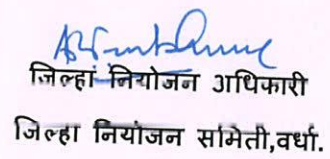 जिल्हा नियोजन अधिकारी
जिल्हा नियोजन समिती,वर्धा.